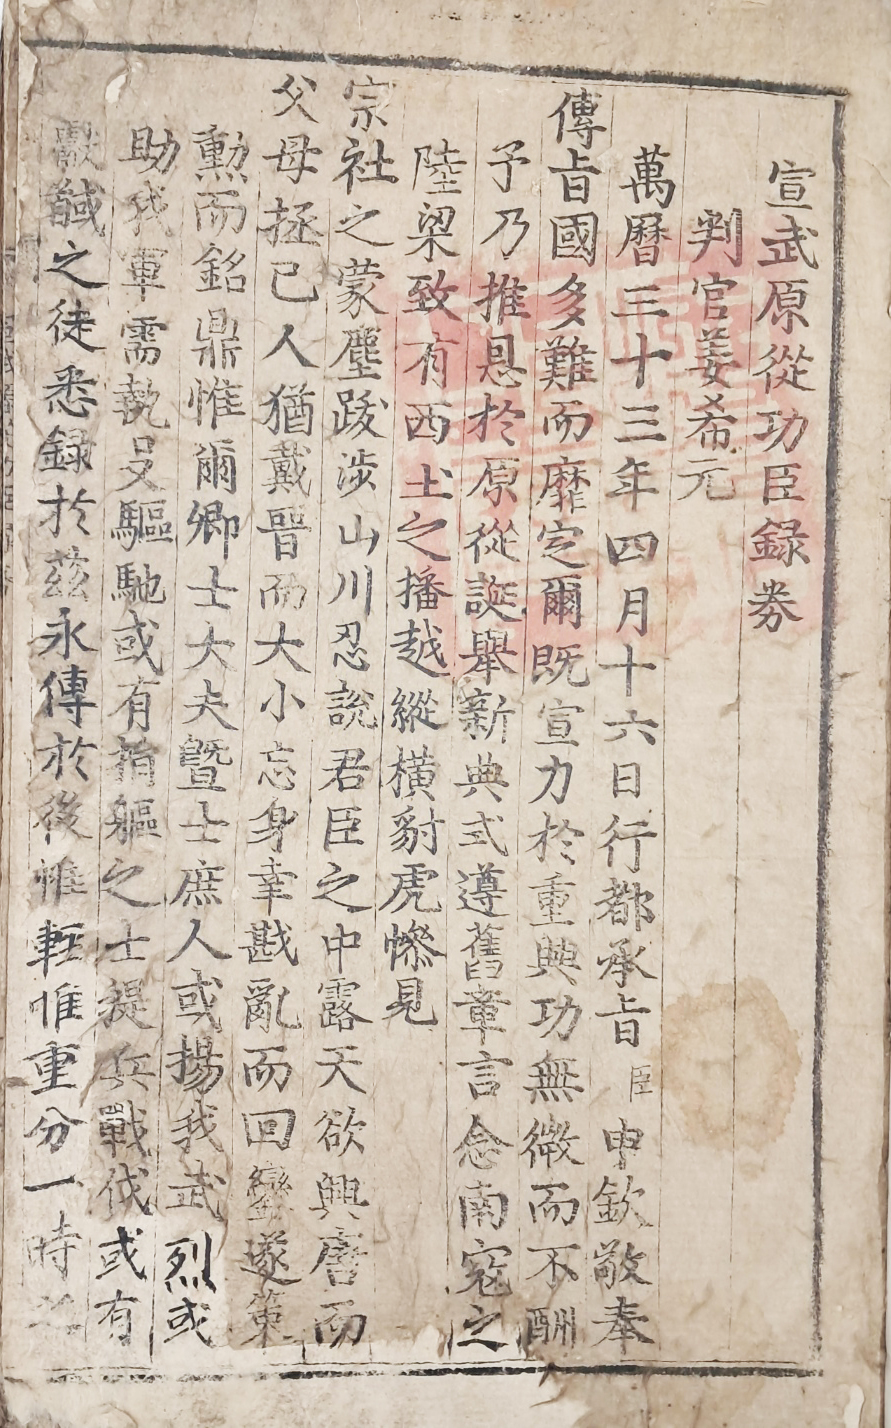 宣武原從功臣錄券
判官姜希元
萬曆三十三年四月十六日行都承旨臣申欽敬奉
傳旨國多難而靡定爾既宣力於重興功無微而不酬
予乃推恩於原從誕擧新典式遵舊章言念南寇之
陸梁致有西土之播越縱橫豺虎慘見
宗社之蒙塵跋涉山川忍說君臣之中露天欲興唐而
父母拯己人猶戴晉而大小忘身幸戡亂而回鑾遂策
勳而銘鼎惟爾卿士大夫曁士庶人或揚我武烈或
助我軍需執殳驅馳或有捐軀之士提兵戰伐或有
獻馘之徒悉錄於玆永傳於後惟輕惟重分一時之